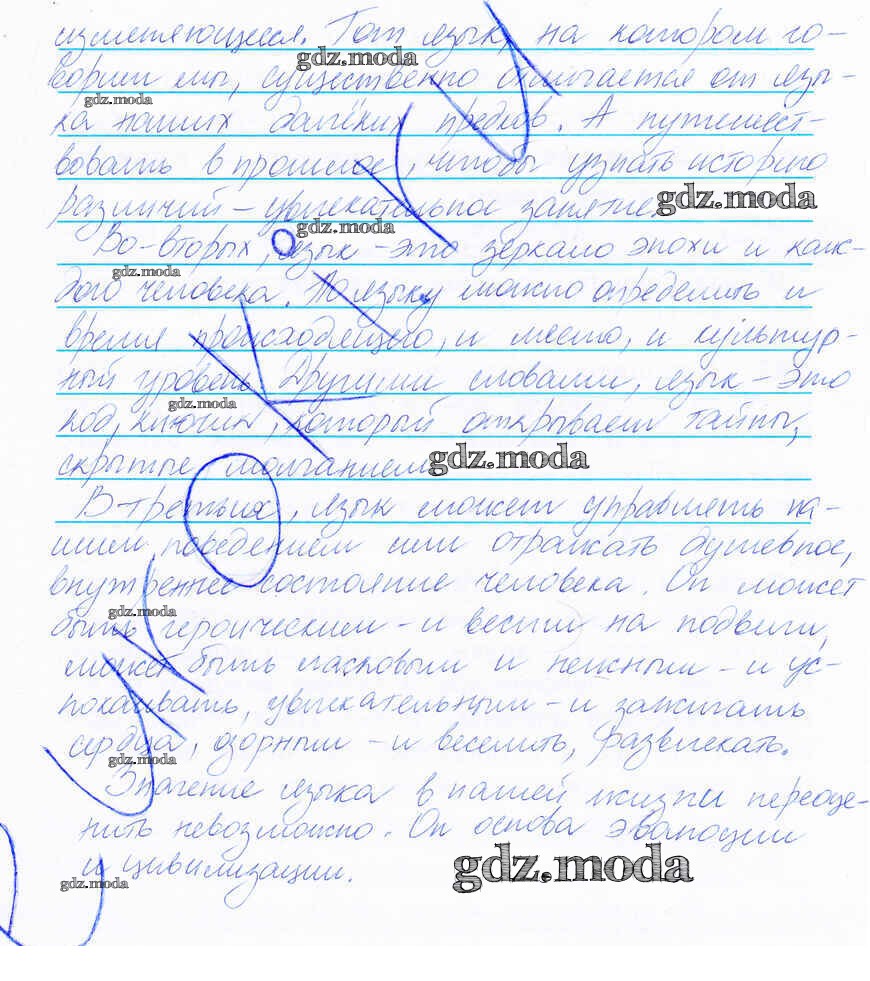 изменяющееся. Тот язык, на котором го-
gdz.moda
ворим мы, существенно отличается от язы-
gdz.moda
ка наших далёких предков. А путешест-
вовать в прошлое, чтобы узнать историю
gdz.moda
различий - увлекательное занятие.
gdz.moda
Во-вторых, язык - это зеркало эпохи и каж-
gdz.moda
дого человека. По языку можно определить и
время происходящего, и место, и культур-
ный уровень. Другими словами, язык - это
gdz.moda
код, ключик, который открывает тайны,
скрытые молчанием.
gdz.moda
В-третьих, язык может управлять на-
шим поведением или отражать душевное,
внутреннее состояние человека. Он может
gdz.moda
быть героическим - и вести на подвиги,
может быть ласковым и нежным - и ус-
покаивать, увлекательным - и зажигать
сердца, озорным - и веселить, развлекать.
gdz.moda
Значение языка в нашей жизни переоце-
нить невозможно. Он основа эволюции
и цивилизации.
gdz.moda
gdz.moda